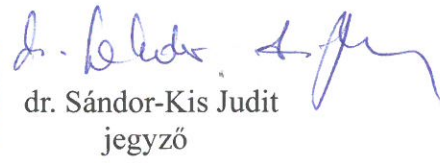 dr. Sándor-Kis Judit
jegyző